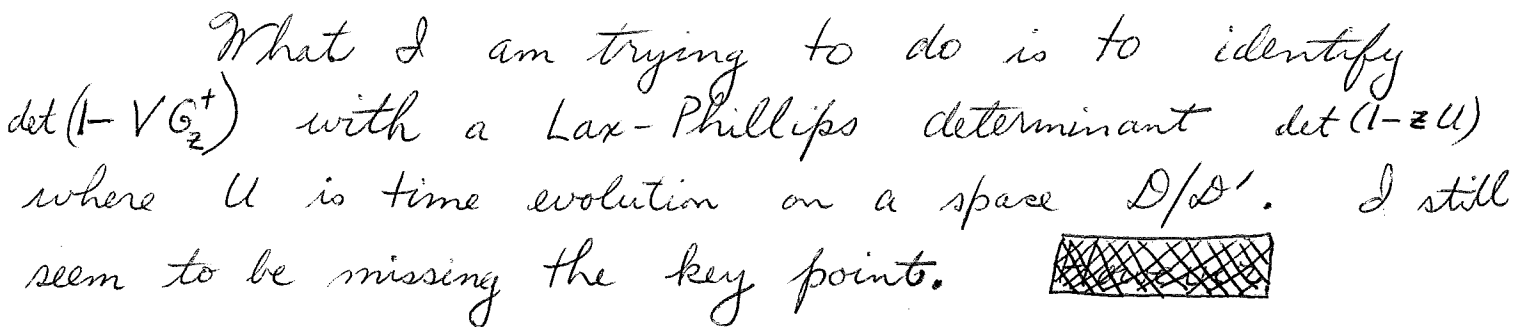 What I am trying to do is to identify
det(1-VG_z^+) with a Lax-Phillips determinant det(1-zU)
where U is time evolution on a space D/D'. I still
seem to be missing the key point.